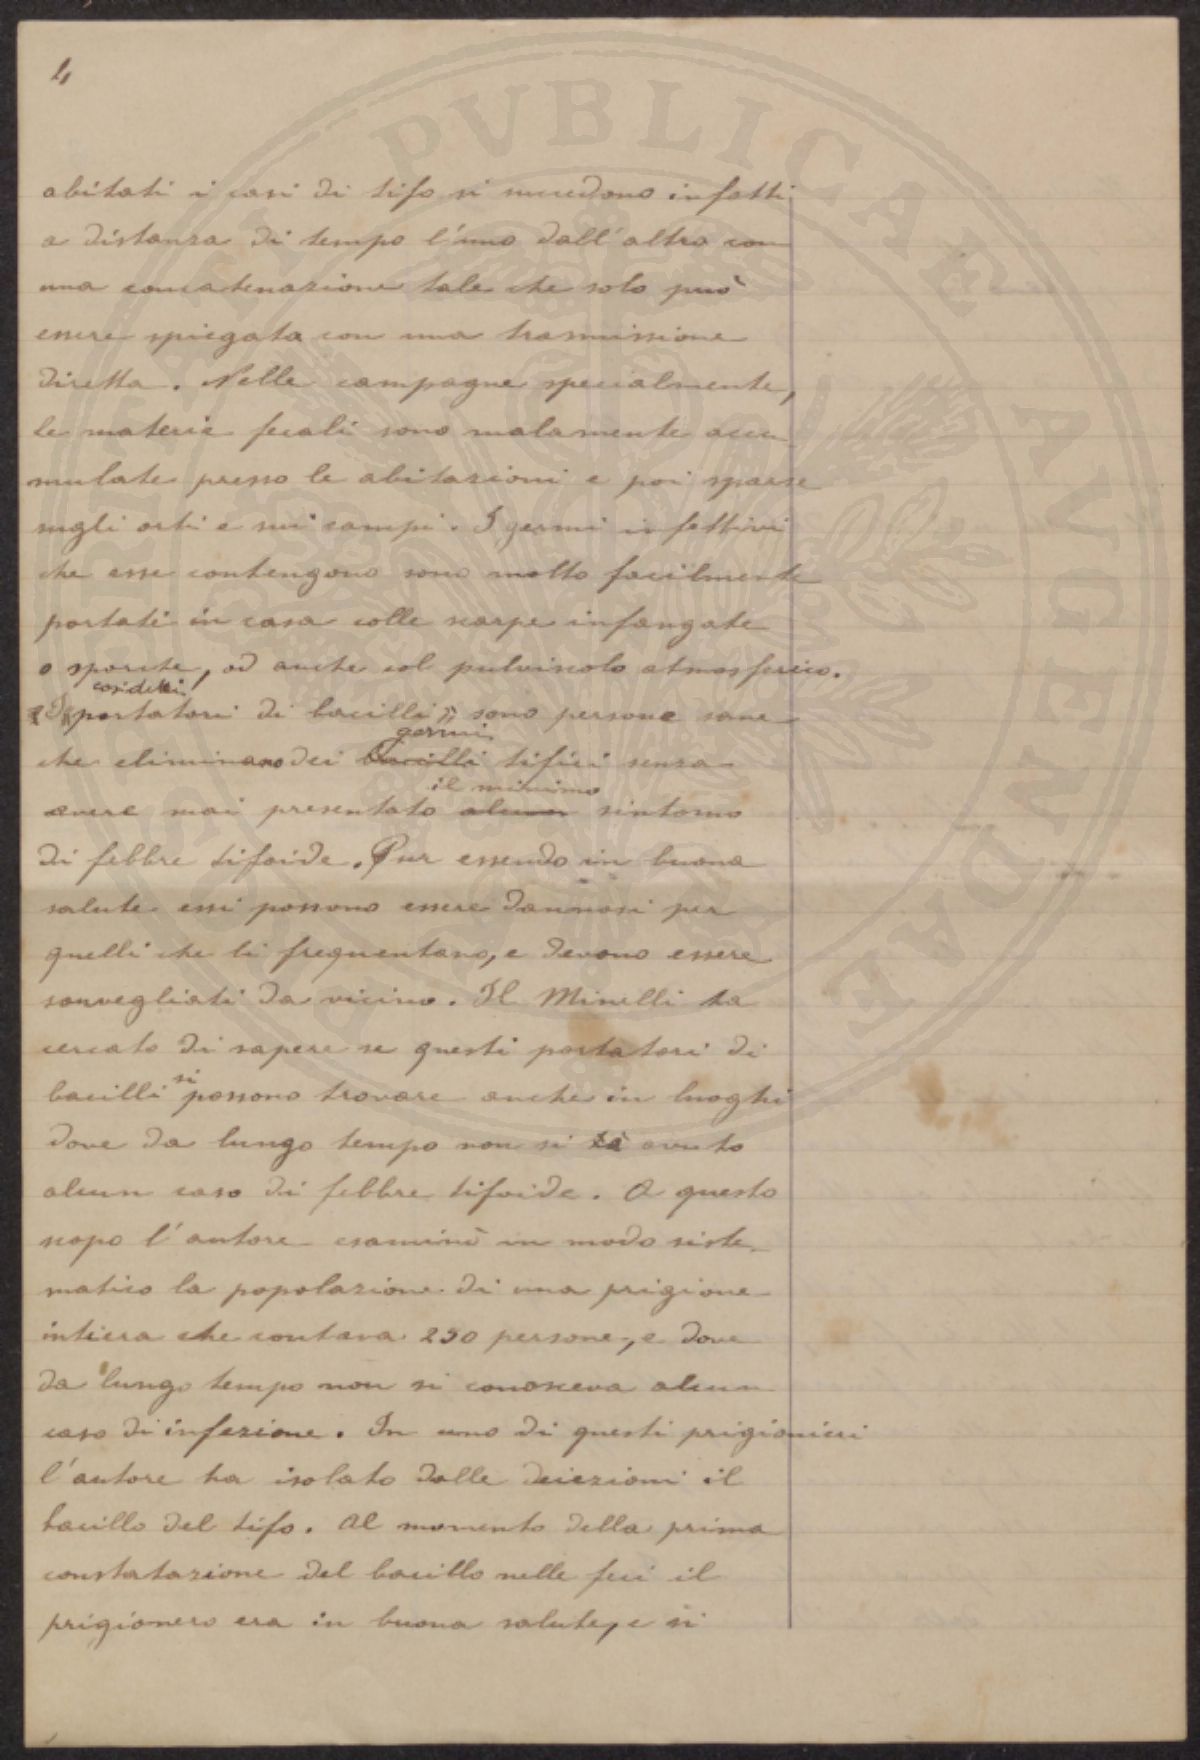 4
PROSPERITATI PVBLICAE AVGENDAE
abitati i casi di tifo si succedono infatti
a distanza di tempo l'uno dall'altro con
una concatenazione tale che solo può
essere spiegata con una trasmissione
diretta. Nelle campagne specialmente,
le materie fecali sono malamente accu
mulate presso le abitazioni e poi sparse
sugli orti e sui campi. I germi infettivi
che esse contengono sono molto facilmente
portati in casa colle scarpe infangate
o sporche, od anche col pulviscolo atmosferico.
cosidetti
I «portatori di bacilli» sono persone sane
germi
che eliminano dei bacilli tifici senza
il minimo
avere mai presentato alcun sintomo
di febbre tifoide. Pur essendo in buona
salute essi possono essere dannosi per
quelli che li frequentano, e devono essere
sorvegliati da vicino. Il Minelli ha
cercato di sapere se questi portatori di
si
bacilli possono trovare anche in luoghi
dove da lungo tempo non si è avuto
alcun caso di febbre tifoide. A questo
scopo l'autore esaminò in modo siste-
matico la popolazione di una prigione
intiera che contava 250 persone, e dove
da lungo tempo non si conosceva alcun
caso di infezione. In uno di questi prigionieri
l'autore ha isolato dalle deiezioni il
bacillo del tifo. Al momento della prima
constatazione del bacillo nelle feci il
prigionero era in buona salute, e si